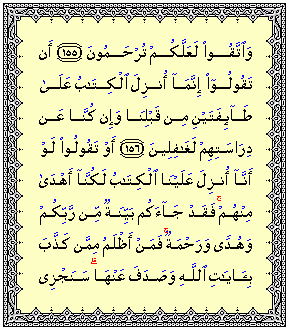 وَٱتَّقُوا۟ لَعَلَّكُمْ تُرْحَمُونَ ﴿١٥٥﴾ أَن
تَقُولُوٓا۟ إِنَّمَآ أُنزِلَ ٱلْكِتَـٰبُ عَلَىٰ
طَآئِفَتَيْنِ مِن قَبْلِنَا وَإِن كُنَّا عَن
دِرَاسَتِهِمْ لَغَـٰفِلِينَ ﴿١٥٦﴾ أَوْ تَقُولُوا۟ لَوْ
أَنَّآ أُنزِلَ عَلَيْنَا ٱلْكِتَـٰبُ لَكُنَّآ أَهْدَىٰ
مِنْهُمْ ۚ فَقَدْ جَآءَكُم بَيِّنَةٌ مِّن رَّبِّكُمْ
وَهُدًى وَرَحْمَةٌ ۚ فَمَنْ أَظْلَمُ مِمَّن كَذَّبَ
بِـَٔايَـٰتِ ٱللَّهِ وَصَدَفَ عَنْهَا ۗ سَنَجْزِى